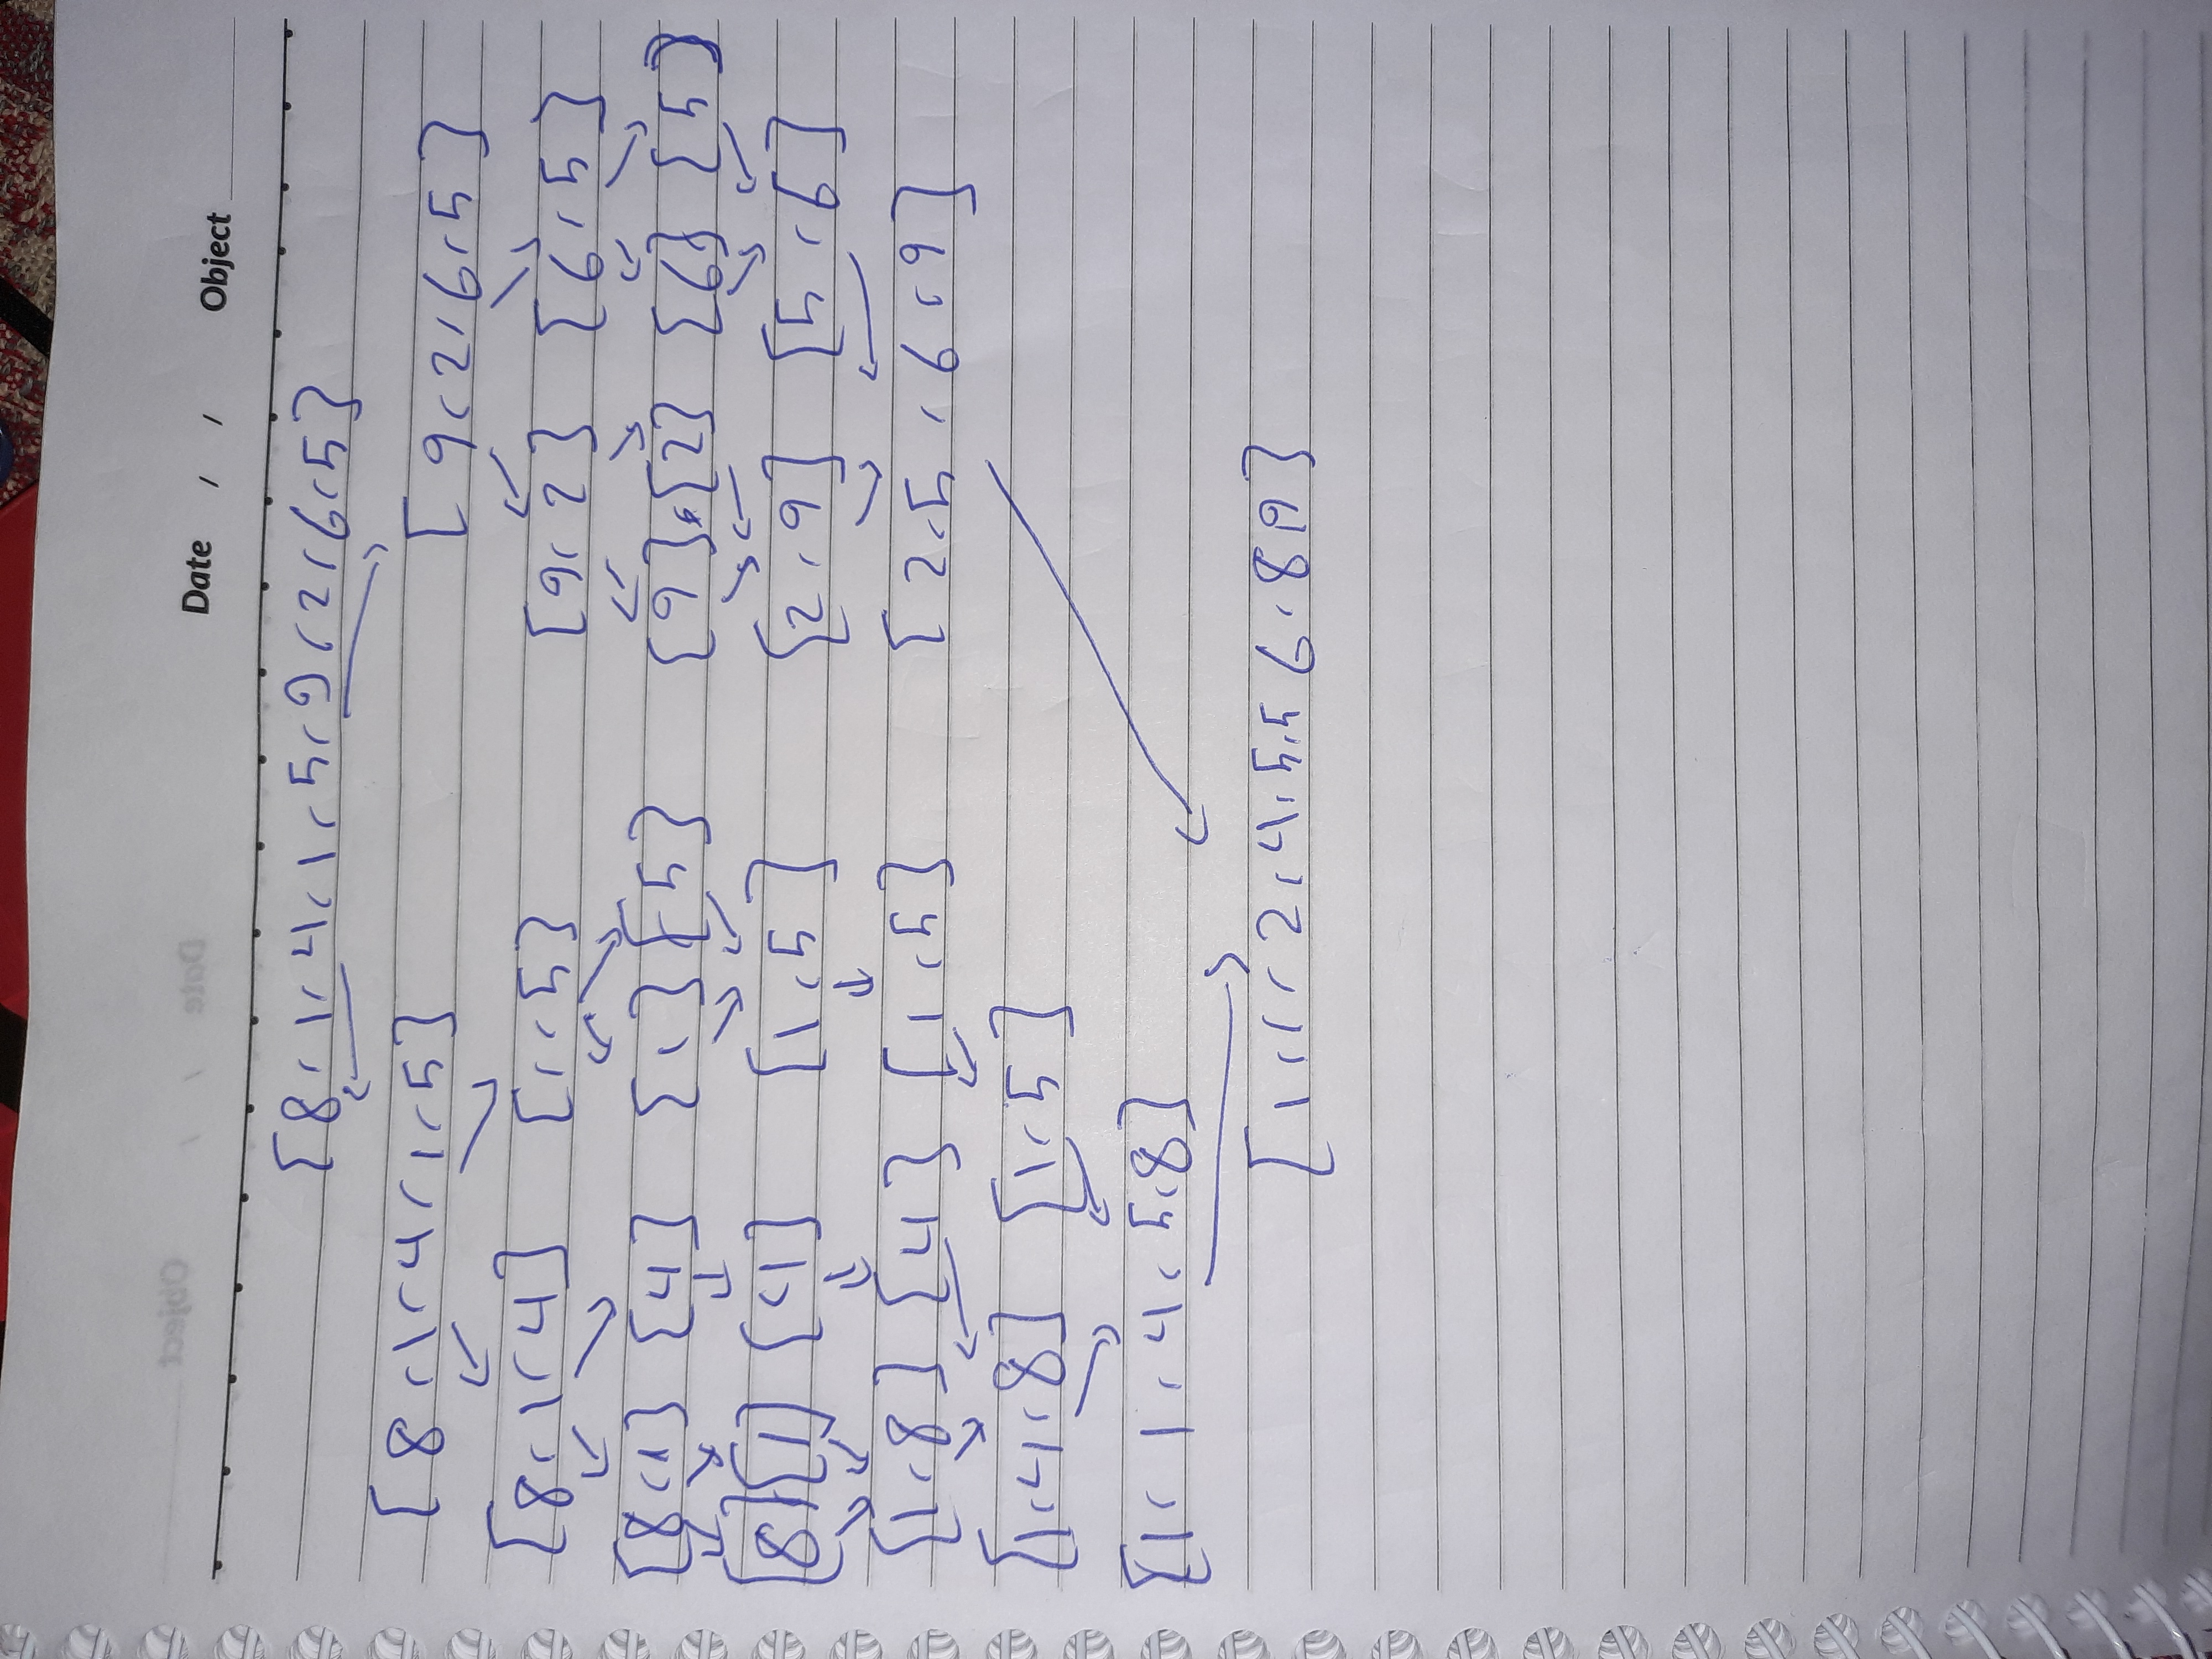 Date / / Object
[8,1,4,1,5,9,2,6,5]
[8,1,4,1,5] [9,2,6,5]
[8,1,4] [1,5] [9,2] [6,5]
[8,1] [4] [1] [5] [9] [2] [6] [5]
[8] [1] [4] [1,5] [2,9] [5,6]
[1,8] [4] [1,5] [2,5,6,9]
[1,4,8] [1,5]
[1,1,4,5,8]
[1,1,2,4,5,5 6,8,9]